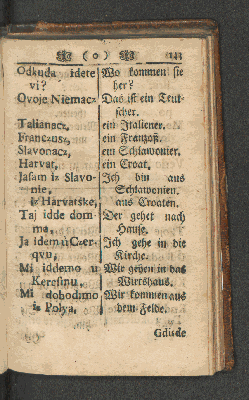 ( o ) 143
Odkuda idete Wo kommen sie
vi? her?
Ovoje Niemacz Das ist ein Teut-
scher.
Talianacz, ein Italiener.
Franczusz, ein Franzoß.
Slavonacz, ein Schlawonier.
Harvat, ein Croat,
Jasam iz Slavo- Ich bin aus
nie, Schlawonien.
iz Harvatske, aus Croaten.
Taj idde dom- Der gehet nach
ma, Hause.
Ja idem u Czer- Ich gehe in die
qvu, Kirche.
Mi iddemo u Wir gehen in das
Keresmu, Wirtshaus.
Mi dohodimo Wir kommen aus
iz Polya, dem Felde.
Gdisde